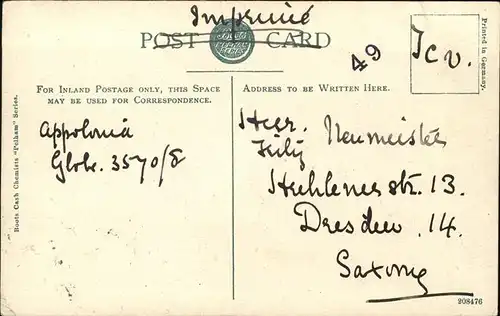 Imprimé
POST CARD
49
Tcv.
Printed in Germany.
FOR INLAND POSTAGE ONLY, THIS SPACE
MAY BE USED FOR CORRESPONDENCE.
ADDRESS TO BE WRITTEN HERE.
Boots Cash Chemists "Pelham" Series.
Appolonia
Globe. 3570/8
Herr. Neumeister
str. 13.
Dresden. 14.
Saxony
208476